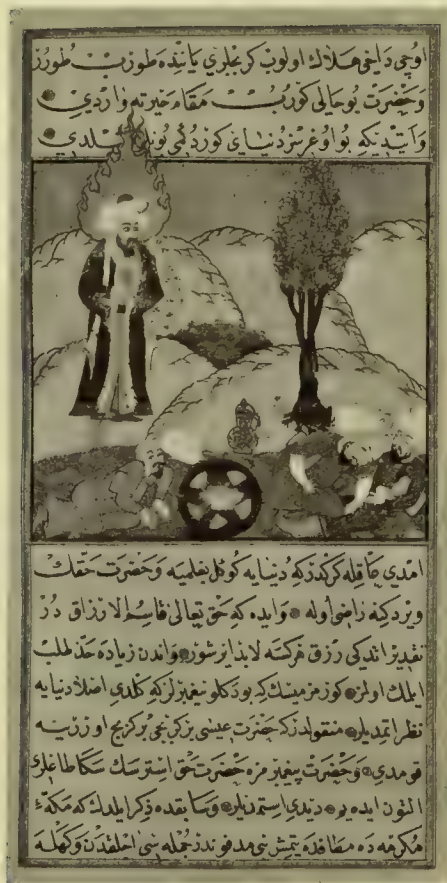 اوچی داخی هلاك اولوب كربچلری یاننده طورب طورر
وحضرت بو حالی كوروب مقام حیرته واردی
وایتدیكه بو اوغرسز دنیایی كوردكی بونلره
امدی عاقله كركدركه دنیایه كوكل بغلمیه وحضرت حقك
ویردكینه راضی اوله وایده كه حق تعالی قاسم الارزاق در
تقدیر ایتدكی رزق هركسه لابد ایرشور واندن زیاده حد طلب
ایلك اولمز كورمزمیسك كه بو دكلو پیغمبرلركه كلدی اصلا دنیایه
نظر ایتمدیلر منقولدركه حضرت عیسی بر كربیجی بر كربیج اوزرینه
قومدی وحضرت پیغمبرمزه حضرت حق استرسك سكا طاغلری
التون ایده یم دیدی استمدیلر وسابقده ذكر ایلدك كه مكهٔ
مكرمه ده مطافده یتمش نبی مدفوندر جمله سی اجلقدن وكهله